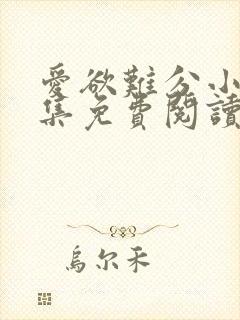 愛欲難分小
集免費閱讀
烏尔禾